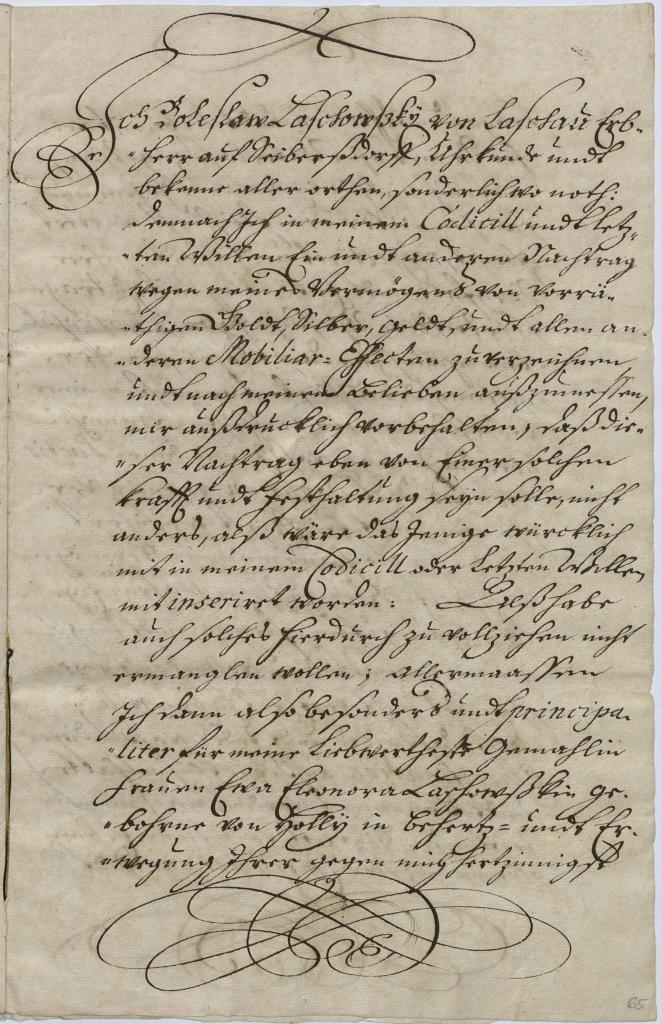 Ich Boleslaw Laschowsky von Laschau Erb-
-Herr auf Seiberßdorff, Uhrkunde undt
bekenne aller orthen, sonderlich wo noth:
demnach Ich in meinem Codicill undt letz-
-ten Willen Ein undt anderen Nachtrag
wegen meines Vermögens von vorrä-
-thigen Goldt, Silber, geldt, undt allen an-
-deren Mobiliar=Effecten zu verzeichnen
undt nach meinem belieben außzumessen,
mir außdrucklich vorbehalten, daß die-
-ser Nachtrag eben von Einer solchen
krafft undt festhaltung seyn solle, nicht
anders, alß wäre das Jenige würcklich
mit in meinem Codicill oder letzten Willen
mit inseriret worden: Alß habe
auch solches hierdurch zu vollziehen nicht
ermanglen wollen; allermaassen
Ich dann also besonders undt principa-
-liter für meine Liebwertheste Gemahlin
Frauen Ewa Eleonora Laschowßkin ge-
-bohrne von Holly in behertz= undt Er-
-wegung Ihrer gegen mich hertzinnigst
65